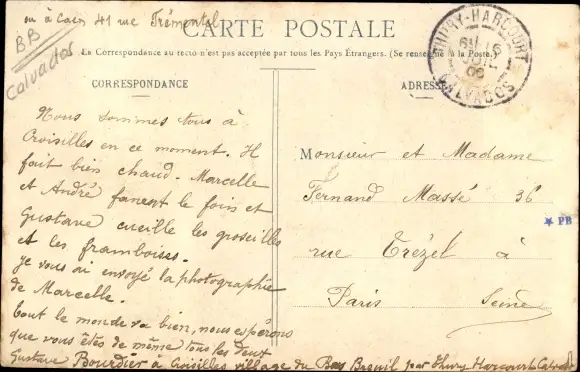 ou à Caen 41 rue Trémental
BB
Calvados
CARTE POSTALE
La Correspondance au recto n'est pas acceptée par tous les Pays Étrangers. (Se renseigner à la Poste.)
THURY-HARCOURT
CALVADOS
CORRESPONDANCE
Nous sommes tous à
Croisilles en ce moment. Il
fait bien chaud. Marcelle
et André fanent le foin et
Gustave cueille les groseilles
et les framboises.
Je vous ai envoyé la photographie
de Marcelle.
tout le monde va bien, nous espérons
que vous êtes de même tous les deux
Gustave Bourdier à Croisilles village du Bas Breuil par Thury Harcourt Calvados
ADRESSE
Monsieur et Madame
Fernand Massé 36
rue Trézel à
Paris Seine
PB